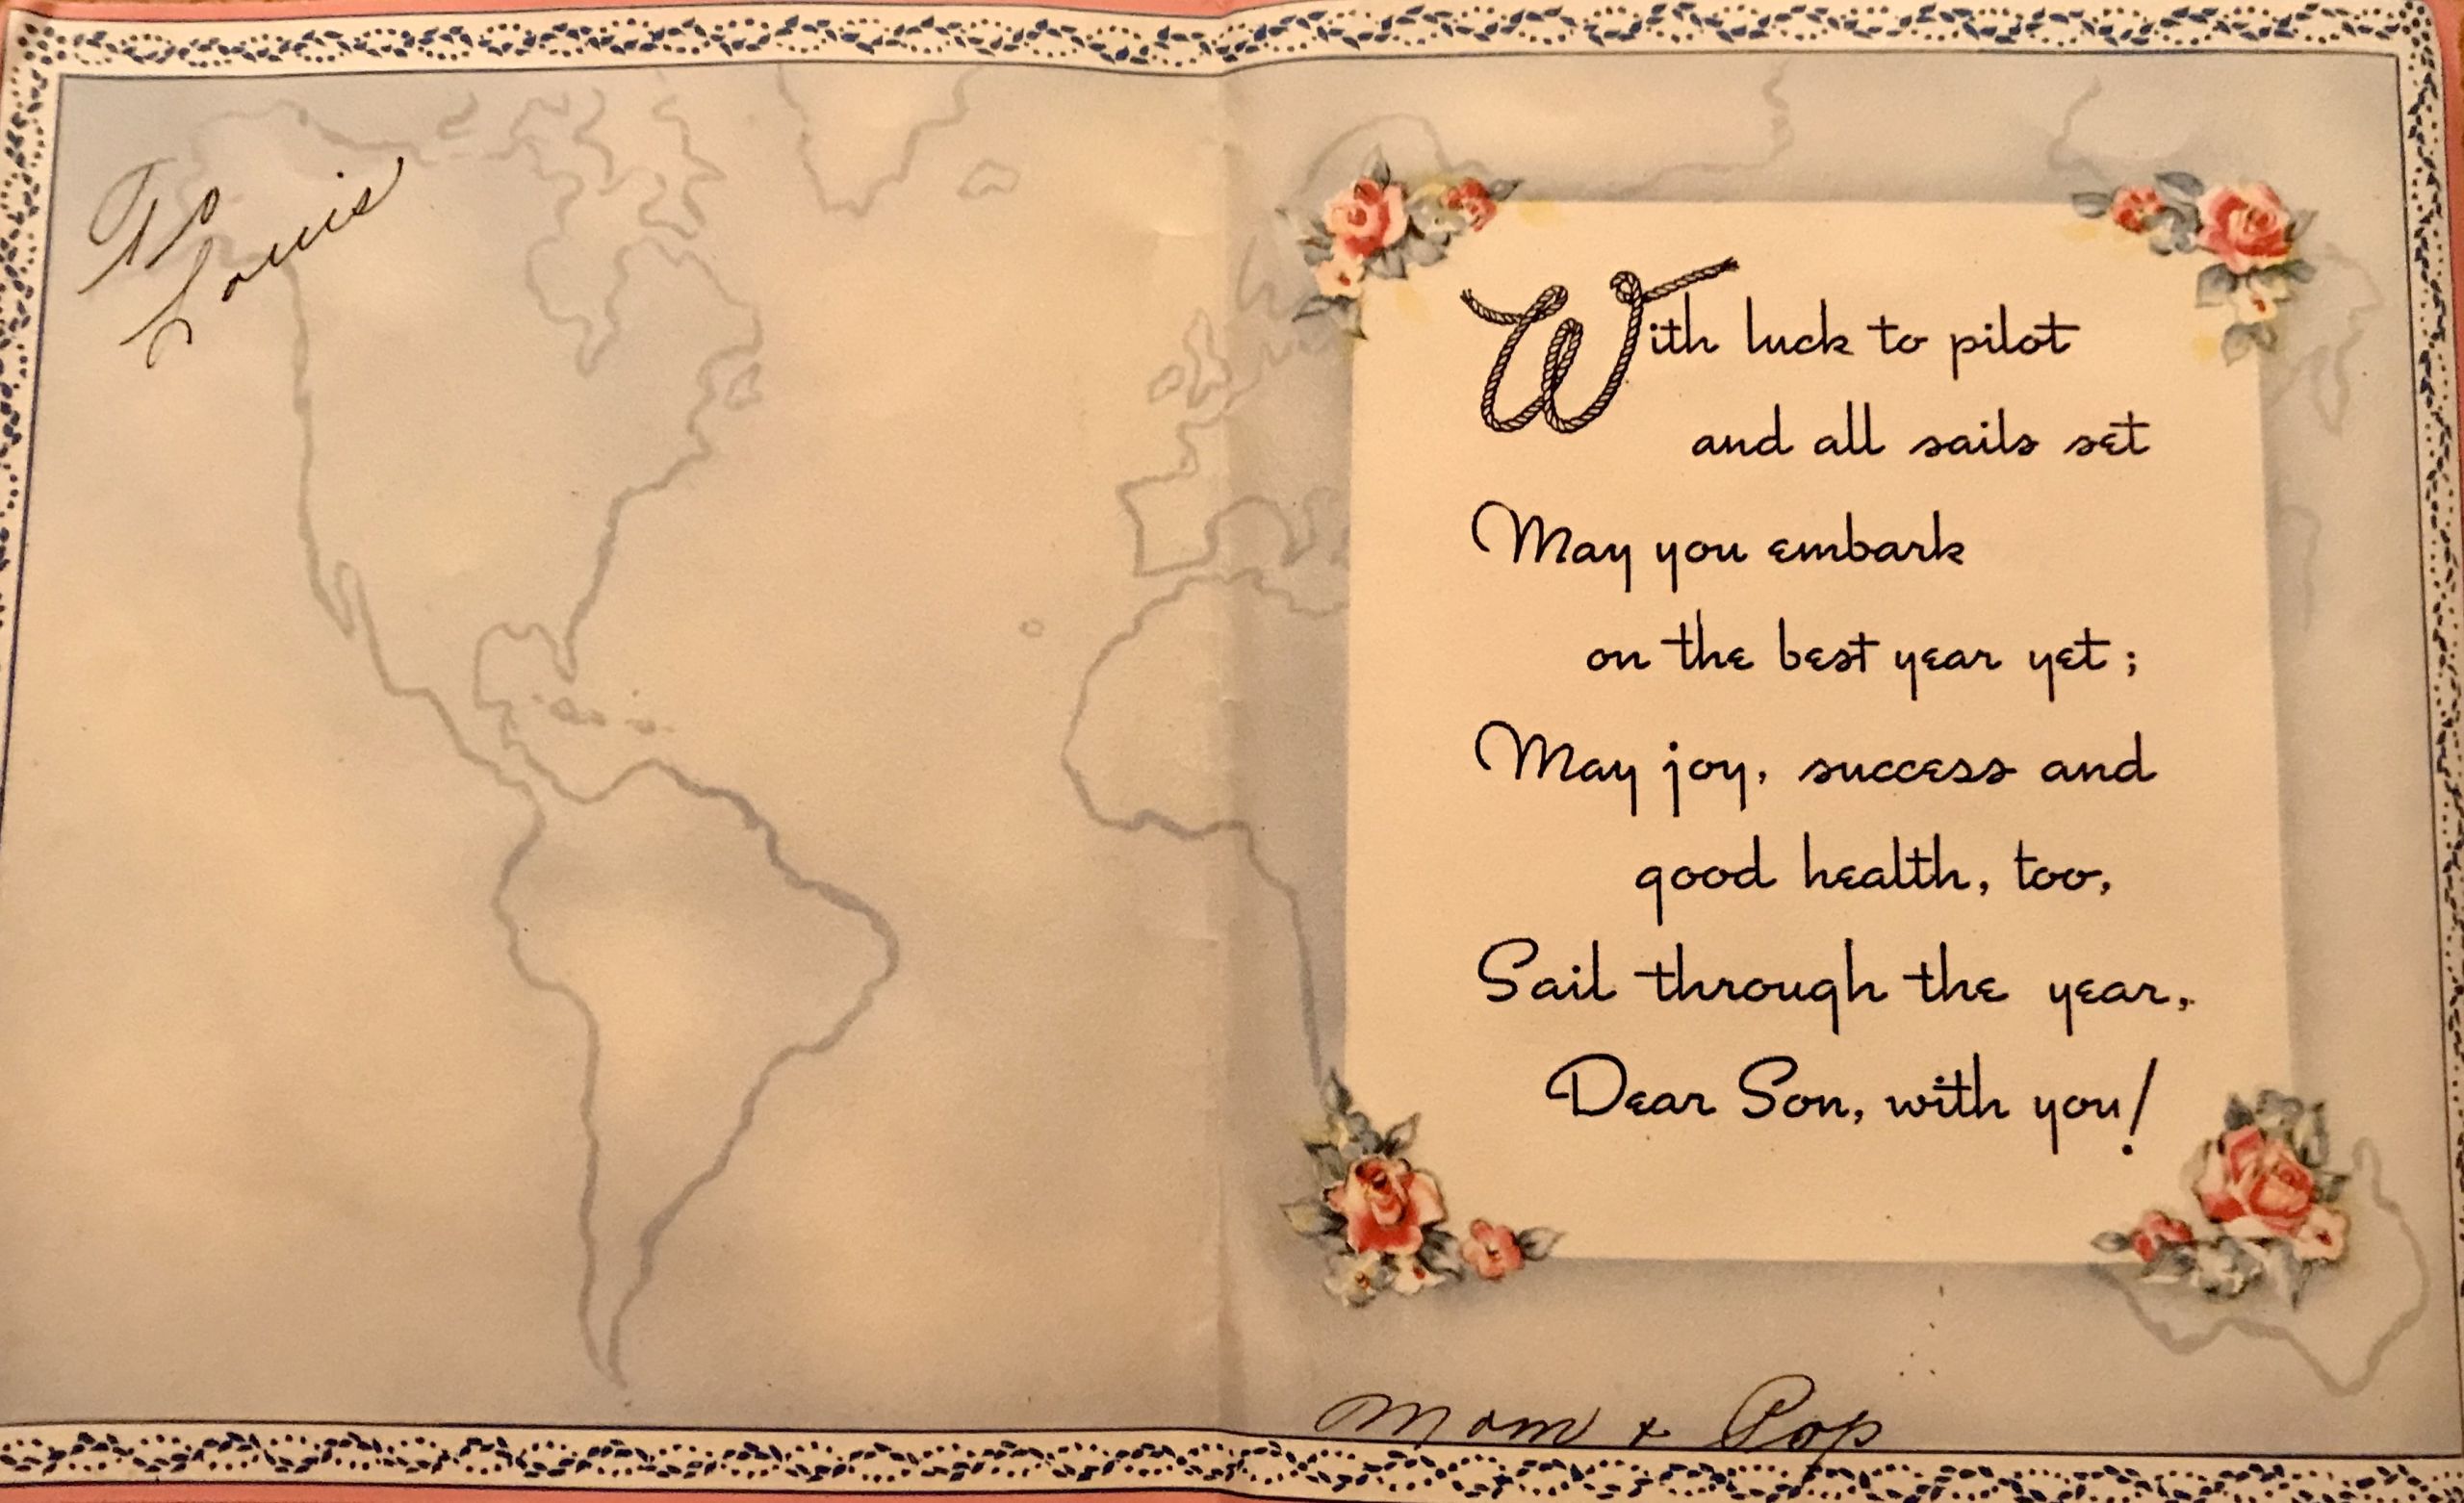 To
Louis
With luck to pilot
and all sails set
May you embark
on the best year yet;
May joy, success and
good health, too,
Sail through the year,
Dear Son, with you!
Mom & Pop